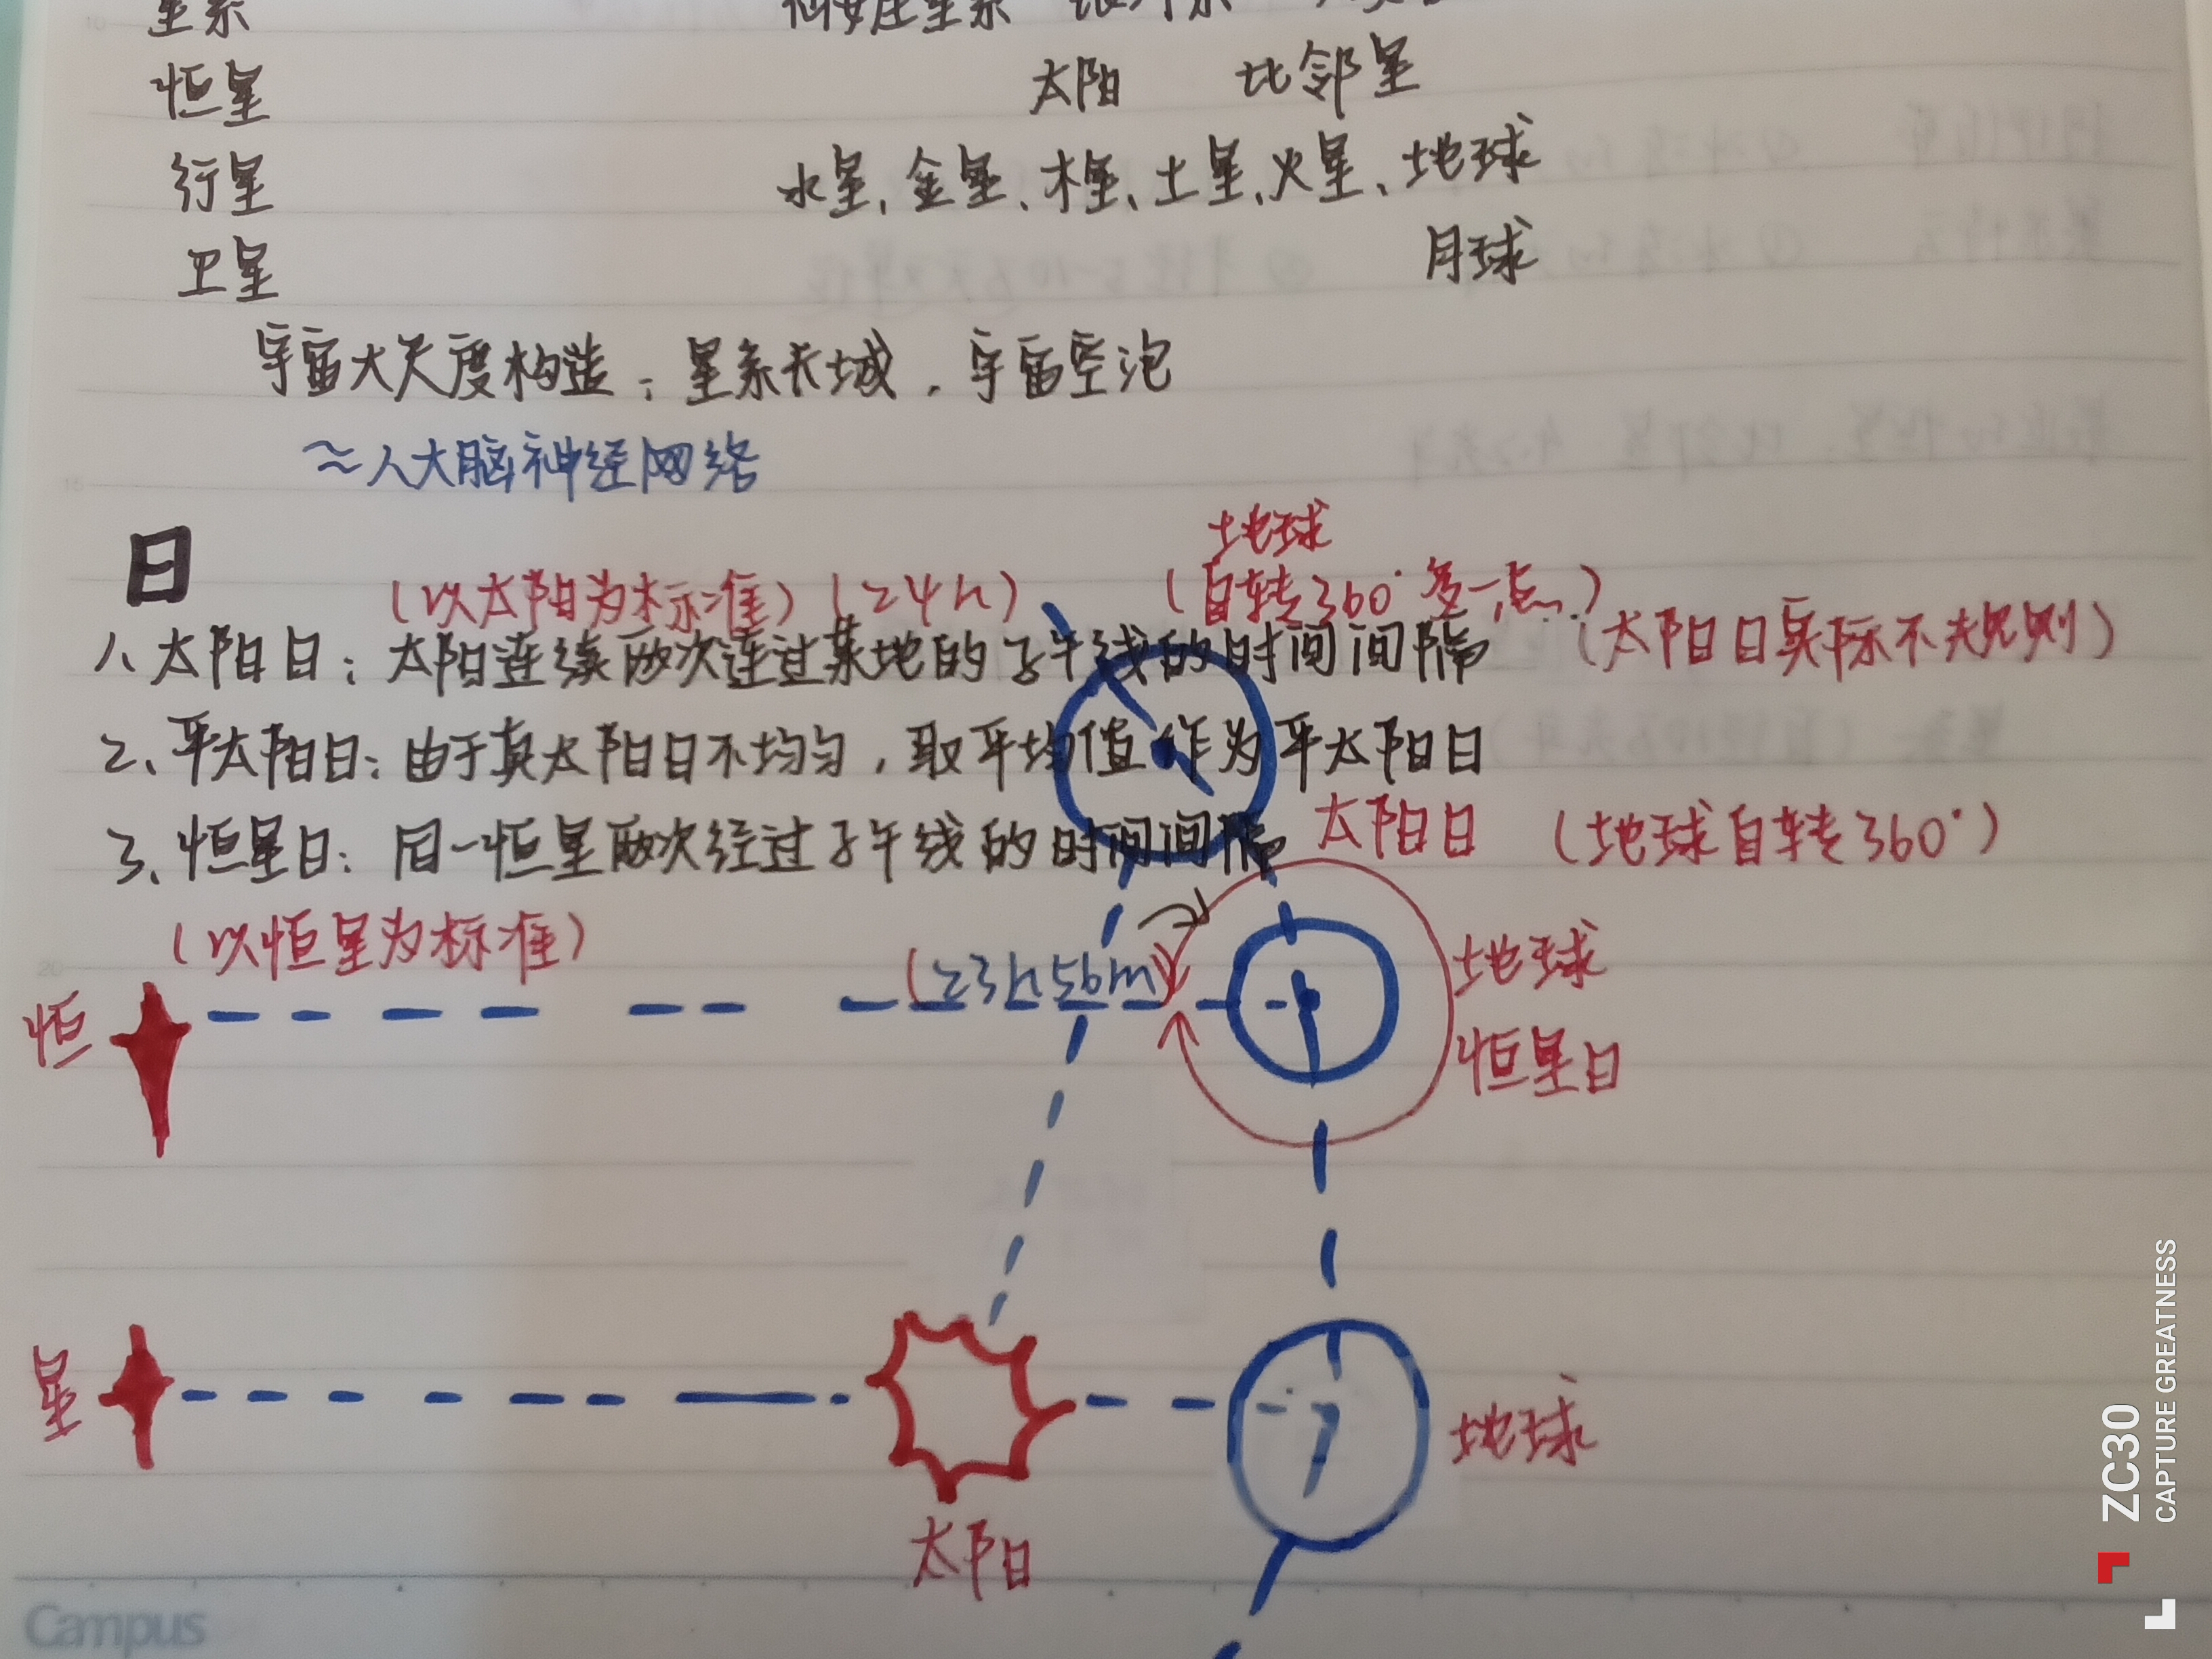 星系
恒星 太阳 比邻星
行星 水星、金星、木星、土星、火星、地球
卫星 月球
宇宙大尺度构造：星系长城，宇宙空泡
≈人大脑神经网络
日
地球
(以太阳为标准)(24h) (自转360°多一点)
1、太阳日：太阳连续两次连过某地的子午线的时间间隔 (太阳日实际不太规则)
2、平太阳日：由于真太阳日不均匀，取平均值作为平太阳日
3、恒星日：同一恒星两次经过子午线的时间间隔 太阳日 (地球自转360°)
(以恒星为标准)
(23h56m)
地球
恒星日
恒
星
地球
太阳
Campus
ZC30
CAPTURE GREATNESS